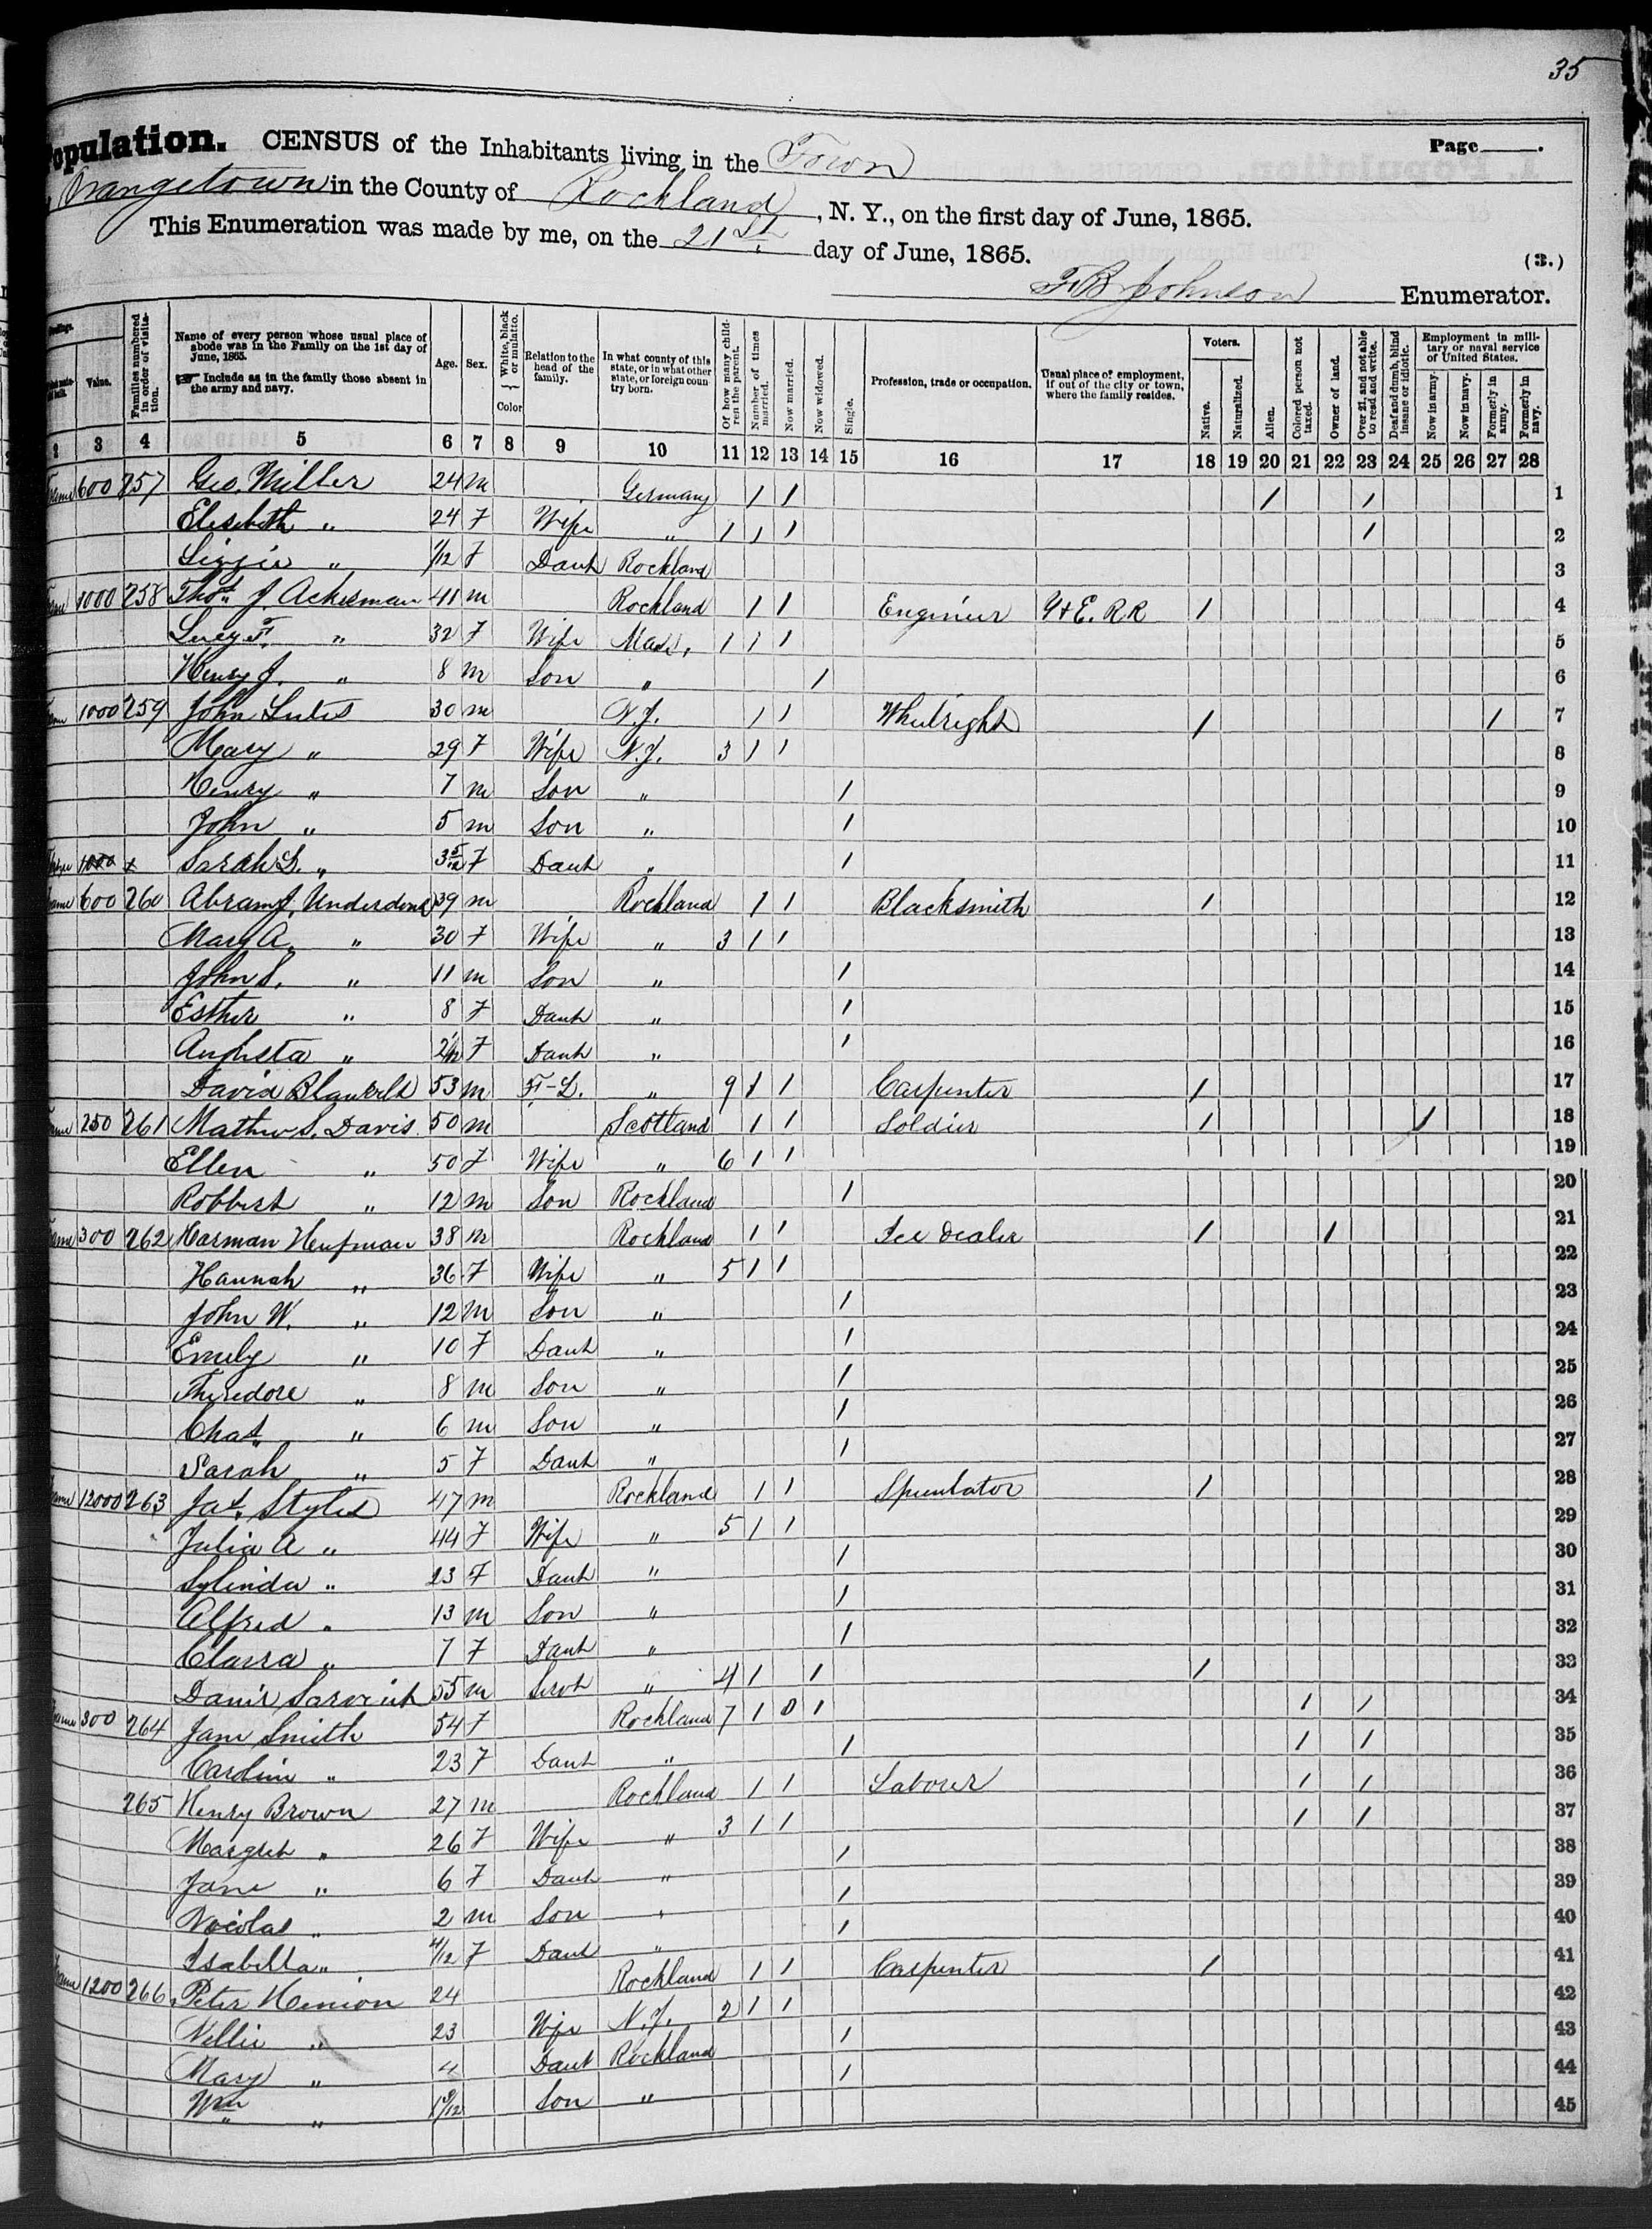 35
Population. CENSUS of the Inhabitants living in the Town Page___.
Orangetown in the County of Rockland, N. Y., on the first day of June, 1865.
This Enumeration was made by me, on the 21st day of June, 1865.
(3.)
F. B. Johnson Enumerator.
Value.
Families numbered in order of visitation.
Name of every person whose usual place of abode was in the Family on the 1st day of June, 1865.
☞ Include as in the family those absent in the army and navy.
Age.
Sex.
White, black or mulatto. Color
Relation to the head of the family.
In what county of this state, or in what other state, or foreign country born.
Of how many children the parent.
Number of times married.
Now married.
Now widowed.
Single.
Profession, trade or occupation.
Usual place of employment, if out of the city or town, where the family resides.
Voters.
Native.
Naturalized.
Alien.
Colored person not taxed.
Owner of land.
Over 21, and not able to read and write.
Deaf and dumb, blind insane or idiotic.
Employment in military or naval service of United States.
Now in army.
Now in navy.
Formerly in army.
Formerly in navy.
2 3 4 5 6 7 8 9 10 11 12 13 14 15 16 17 18 19 20 21 22 23 24 25 26 27 28
600 257 Geo. Miller 24 m Germany 1 1 1 1 1
Elesebth " 24 F Wife " 1 1 1 1 2
Lizzie " 1/12 F Dauh Rockland 3
1000 258 Thos. J. Ackerman 41 m Rockland 1 1 Engineer Y & E. RR 1 4
Lucy F. " 32 F Wife Mass. 1 1 1 5
Henry J. " 8 m Son " 1 6
1000 259 John Lutes 30 m N.J. 1 1 Wheelright 1 1 7
Mary " 29 F Wife N.J. 3 1 1 8
Henry " 7 m Son " 1 9
John " 5 m Son " 1 10
1000 Sarah L. " 3 5/12 F Dauh " 1 11
Frame 600 260 Abram J. Underdonk 39 m Rockland 1 1 Blacksmith 1 12
Mary A. " 30 F Wife " 3 1 1 13
John S. " 11 m Son " 1 14
Esther " 8 F Dauh " 1 15
Augusta " 2/12 F Dauh " 1 16
David Blauvelt 53 m F-L. " 9 1 1 Carpenter 1 17
Frame 250 261 Mathew S. Davis 50 m Scotland 1 1 Soldier 1 1 18
Ellen " 50 F Wife " 6 1 1 19
Robbert " 12 m Son Rockland 1 20
Frame 300 262 Harman Heufman 38 m Rockland 1 1 Ice Dealer 1 1 21
Hannah " 36 F Wife " 5 1 1 22
John W. " 12 m Son " 1 23
Emely " 10 F Dauh " 1 24
Theredore " 8 m Son " 1 25
Chas. " 6 m Son " 1 26
Sarah " 5 F Dauh " 1 27
Frame 12000 263 Jas. Styles 47 m Rockland 1 1 Speculator 1 28
Julia A " 44 F Wife " 5 1 1 29
Sylinda " 23 F Dauh " 1 30
Alfred " 13 m Son " 1 31
Clarra " 7 F Dauh " 1 32
55 m Servt " 4 1 1 1 33
Frame 300 264 Jane Smith 54 F Rockland 7 1 0 1 1 1 34
Caroline " 23 F Dauh " 1 1 1 35
265 Henry Brown 27 m Rockland 1 1 Laborer 1 1 36
Margret " 26 F Wife " 3 1 1 1 1 37
Jane " 6 F Dauh " 1 38
Nicolas " 2 m Son " 1 39
Isabella " 4/12 F Dauh " 1 40
Frame 1200 266 Peter Henion 24 Rockland 1 1 Carpenter 1 41
Nellie " 23 Wife N.J. 2 1 1 42
Mary " 4 Daut Rockland 1 43
Wm " Son " 1 44
45